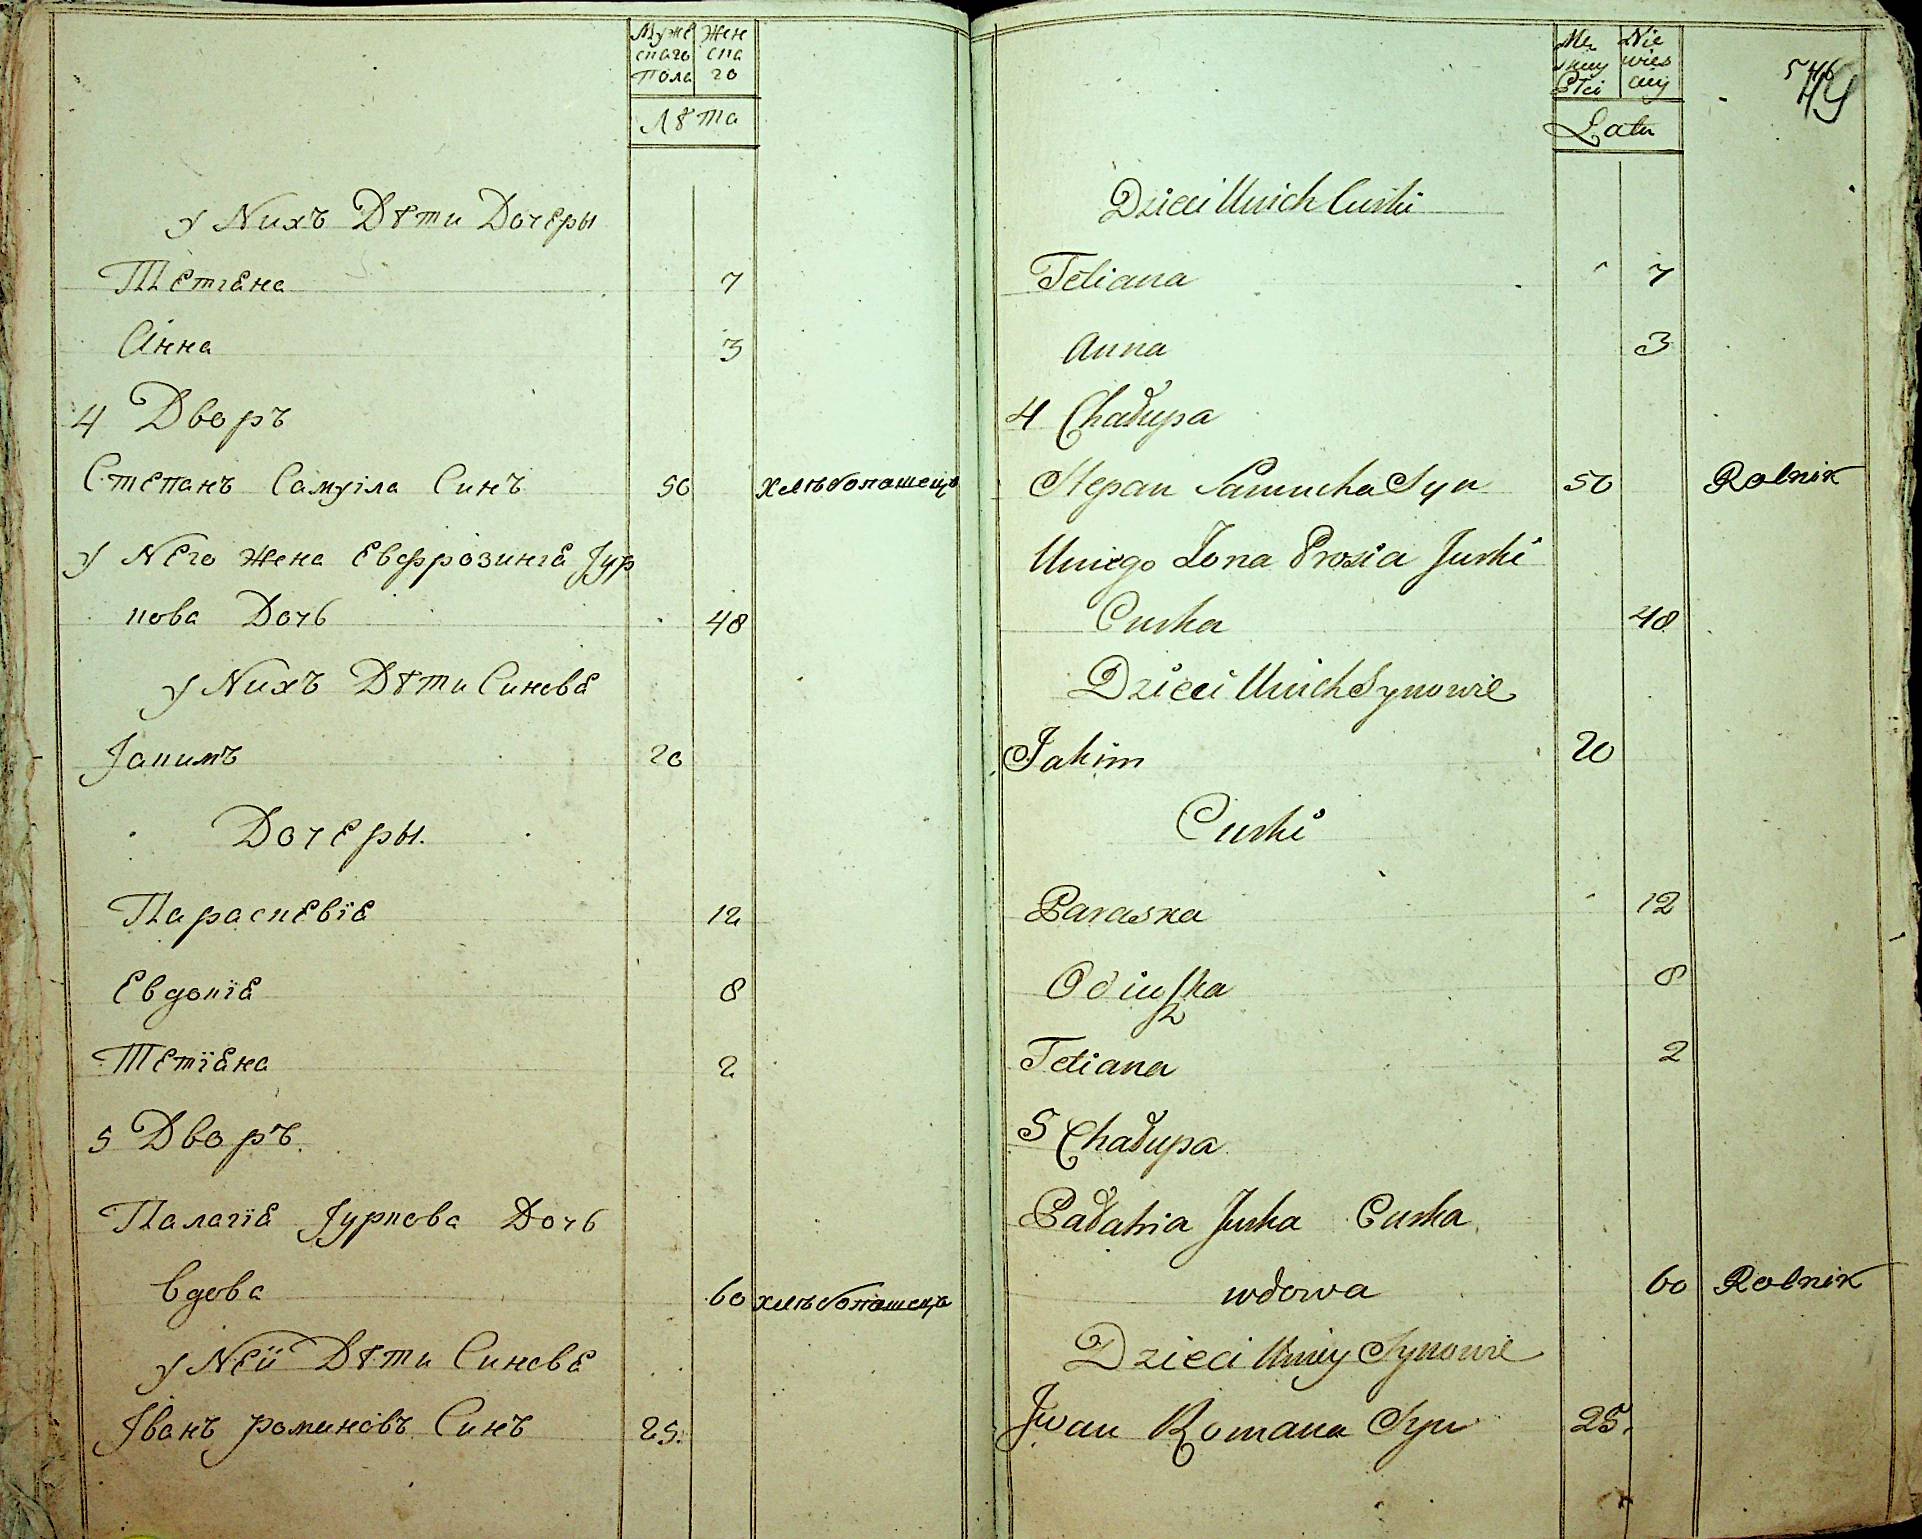 Муже Жен
скаго ска
Пола го
Лѣта
у Nихъ Дѣти Дочеры
Тетіана 7
Анна 3
4 Дворъ
Степанъ Самуіла Синъ 50 Хлѣбопашецъ
у Nего жена Евфрозиніа Јур
кова Дочь 48
у Nихъ Дѣти Синова
Јакимъ 20
Дочеры.
Параскевїа 12
Евдокїа 8
Тетїана 2
5 Дворъ.
Палагїа Јуркова Дочь
Вдова 60 хлѣбопашецъ
у Nей Дѣти Синова
Јванъ романовъ Синъ 25.
Mę Nie
skiey wies
Płci ciey
Lata
Dzieci Unich Curki
Tetiana 7
Anna 3
4 Chałupa
Stepan Samucha Syn 50 Rolnik
Uniego Żona Prosia Jurki
Curka 48
Dzieci Unich Synowie
Jakim 20
Curki
Paraska 12
Odiuszka 8
Tetiana 2
5 Chałupa
Pałahia Jurka Curka
wdowa 60 Rolnik
Dzieci Uniey Synowie
Jwan Romana Syn 25.